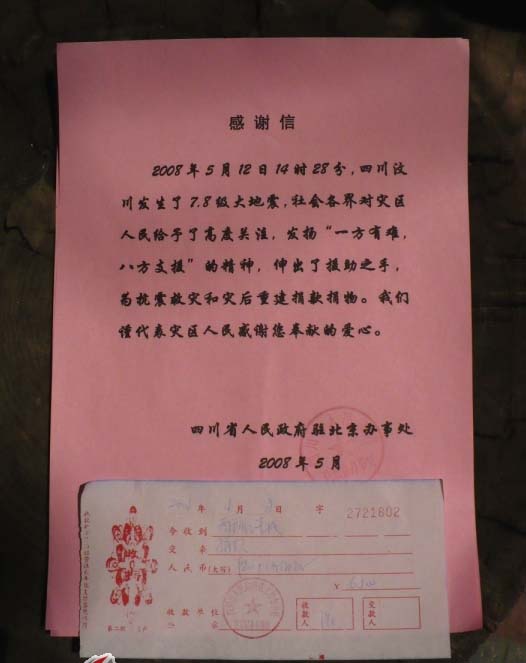 感谢信
2008年5月12日14时28分,四川汶
川发生了7.8级大地震,社会各界对灾区
人民给予了高度关注,发扬“一方有难,
八方支援”的精神,伸出了援助之手,
为抗震救灾和灾后重建捐款捐物。我们
谨代表灾区人民感谢您奉献的爱心。
四川省人民政府驻北京办事处
2008年5月
年 月 日 字 2721602
今收到
交来
人民币(大写)
¥
收款单位
收款人
交款人
收据